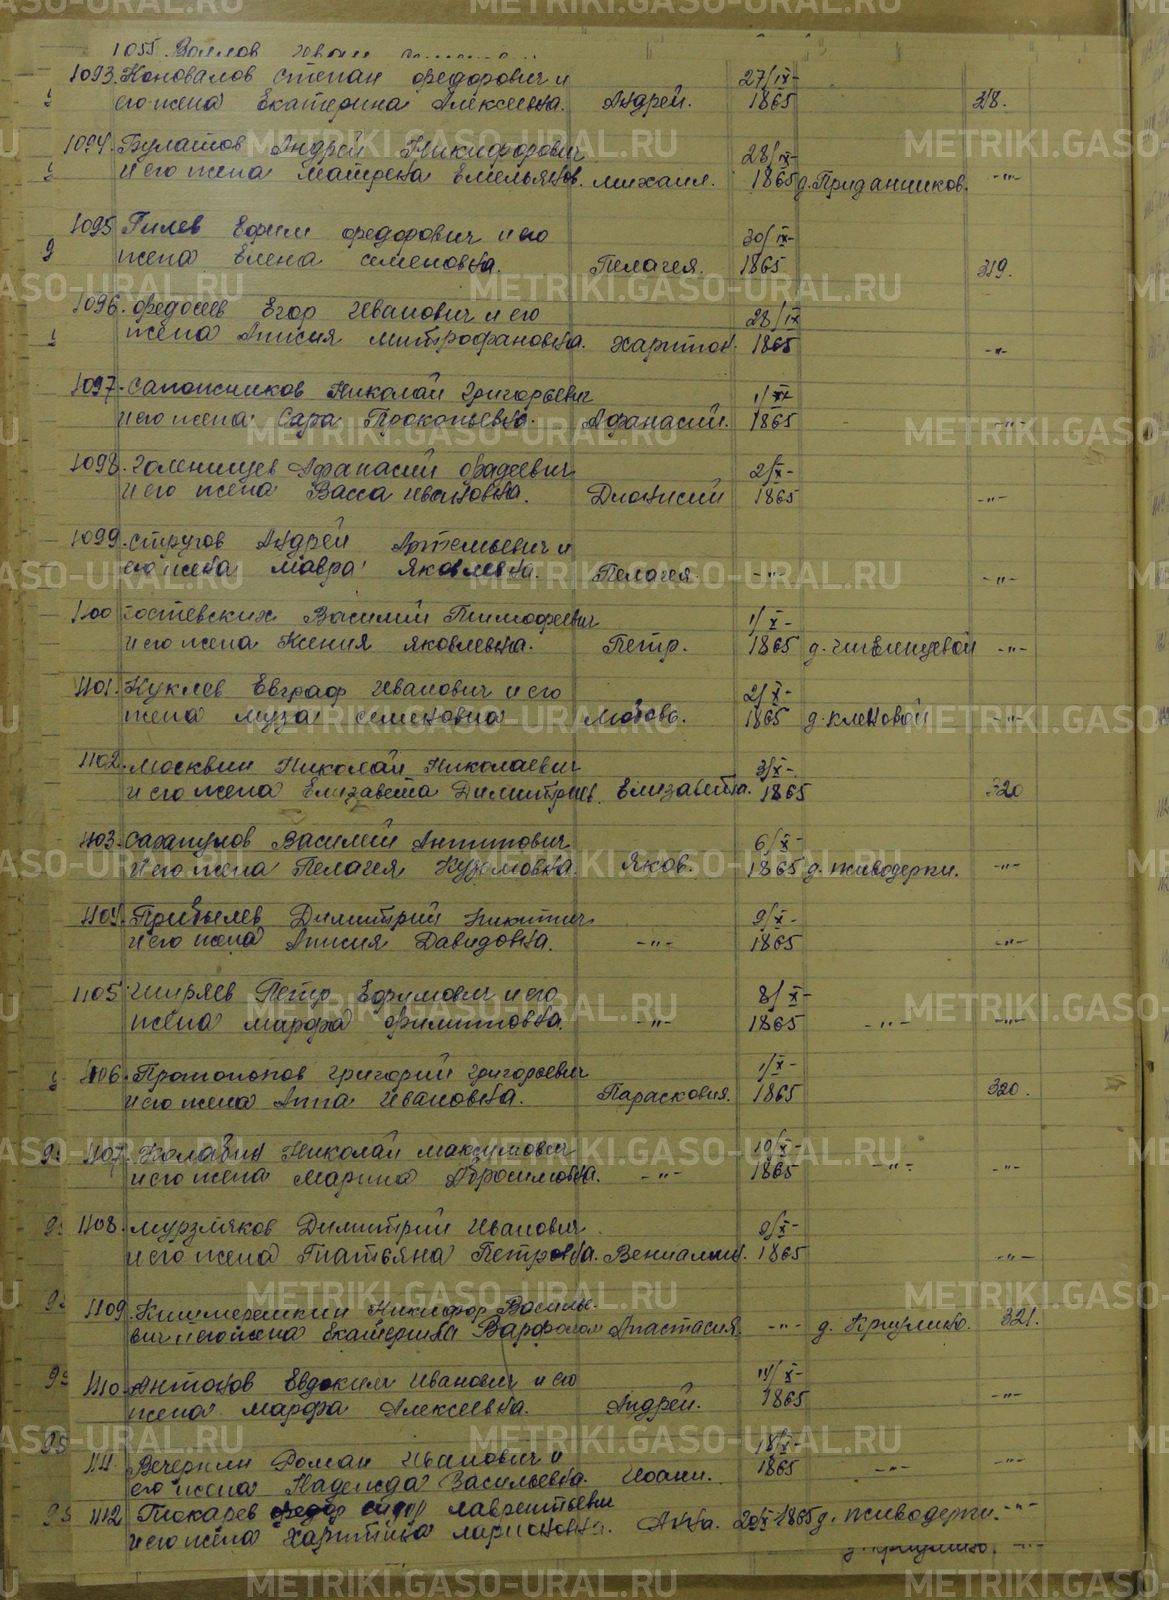 1055. Иван
1093. Коновалов Степан Федорович и 27/IX-
его жена Екатерина Алексеевна. Андрей. 1865 318.
1094. Булатов Андрей Никифорович 28/IX-
и его жена Матрена Емельянов. Михаил. 1865 д. Приданников. -"-
1095 Гилев Ефим Федорович и его 30/IX-
жена Елена Семеновна. Пелагея. 1865 319.
1096. Федосеев Егор Иванович и его 28/IX
жена Анисия Митрофановна. Харитон. 1865 -"-
1097. Сапожников Николай Григорьевич 1/
и его жена Сара Прокопьевна. Афанасий. 1865 -"-
1098. Голенищев Афанасий Фадеевич 2/X-
и его жена Васса Ивановна. Дионисий 1865 -"-
1099. Стругов Андрей Артемьевич и
его жена Мавра Яковлевна. Пелагея -"- -"-
1100 Гостевских Василий Тимофеевич 1/X-
и его жена Ксения Яковлевна. Петр. 1865 д. -"-
1101. Куклев Евграф Иванович и его 2/X-
жена Муза Семеновна Любовь. 1865 д. Кленовой -"-
1102. Москвин Николай Николаевич 3/X-
и его жена Елизавета Димитриев. Елизавета. 1865 320
1103. Сагатулов Василий Антипович 6/X-
и его жена Пелагея Кузмовна. Яков. 1865 д. Живодерки. -"-
1104. Прибылев Димитрий Никитич 9/X-
и его жена Анисия Давидовна. -"- 1865 -"-
1105 Ширяев Петр Ефимович и его 8/X-
жена Марфа Филиповна. -"- 1865 -"- -"-
1106. Протопопов Григорий Григорьевич 1/X-
и его жена Анна Ивановна. Парасковия. 1865 320.
1107. Николай Максимович 10/X-
и его жена Марина Абросимовна. -"- 1865 -"- -"-
1108. Мурзляков Димитрий Иванович 9/X-
и его жена Татьяна Петровна. Вениамин. 1865 -"-
1109. Никифор Василье-
вич и его жена Екатерина Варфолом Анастасия. -"- д. Криулино. 321.
1110. Антонов Евдоким Иванович и его 14/X-
жена Марфа Алексеевна. Андрей. 1865 -"-
1111. Вечеркин Роман Иванович и 18/X-
его жена Надежда Васильевна. Иоанн. 1865 -"- -"-
1112 Токарев Лаврентьевич
и его жена Харитина Ларионовна. Анна. 20/X-1865 д. Живодерки. -"-
д. Криулино. -"-
METRIKI.GASO-URAL.RU